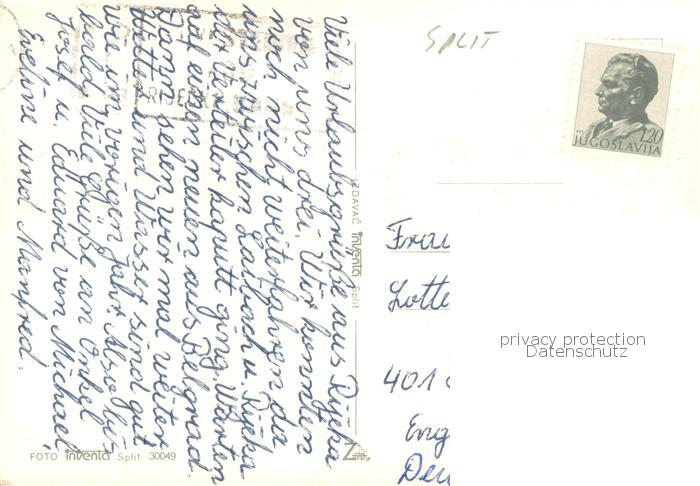 Viele Urlaubsgrüße aus Rijeka
von uns drei. Wir konnten
noch nicht weiterfahren da
uns zwischen Laibach u. Rijeka
der Verteiler kaputt ging. Warten
auf einen neuen aus Belgrad.
Dann sehen wir mal weiter
Wetter und Wasser sind gut
wie im vorigen Jahr. Also bis
bald. Viele Grüße an Onkel
Josef u. Eduard von Michael,
Eveline und Manfred.
IZDAVAČ inventa Split
FOTO inventa Split 30049
SPLIT
1.20
JUGOSLAVIJA
Frau
Lotte
401
Eng
Deu
privacy protection
Datenschutz